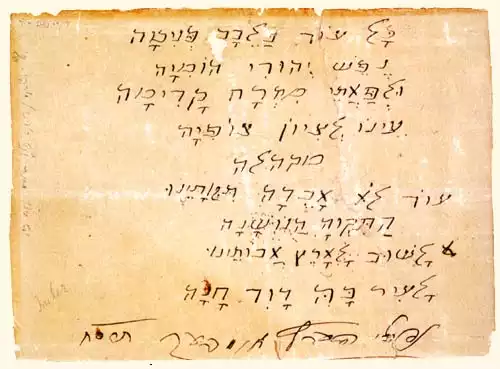 כָּל עוֹד בַּלֵּבָב פְּנִימָה
נֶפֶשׁ יְהוּדִי הוֹמִיָּה
וּלְפַאֲתֵי מִזְרָח קָדִימָה
עֵינוֹ לְצִיּוֹן צוֹפִיָּה
מקהלה
עוֹד לֹא אָבְדָה תִּקְוָתֵנוּ
הַתִּקְוָה הַנּוֹשָׁנָה
לָשׁוּב לְאֶרֶץ אֲבוֹתֵינוּ
לְעִיר בָּהּ דָּוִד חָנָה
נפתלי הירץ אימבער תרס״ח
Imber